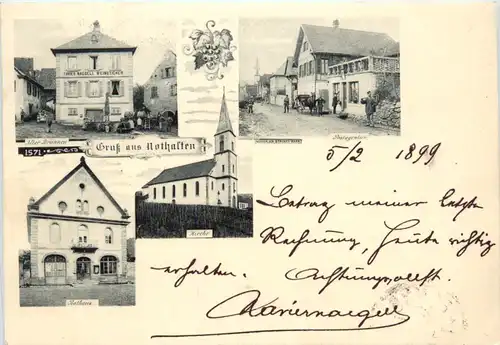 Alter Brunnen
1571.
Gruß aus Nothalten
Photographie
Kirche
Rathaus
5/2 1899
Betrag meiner letzten
Rechnung, Heute richtig
erhalten. Achtungsvollst.